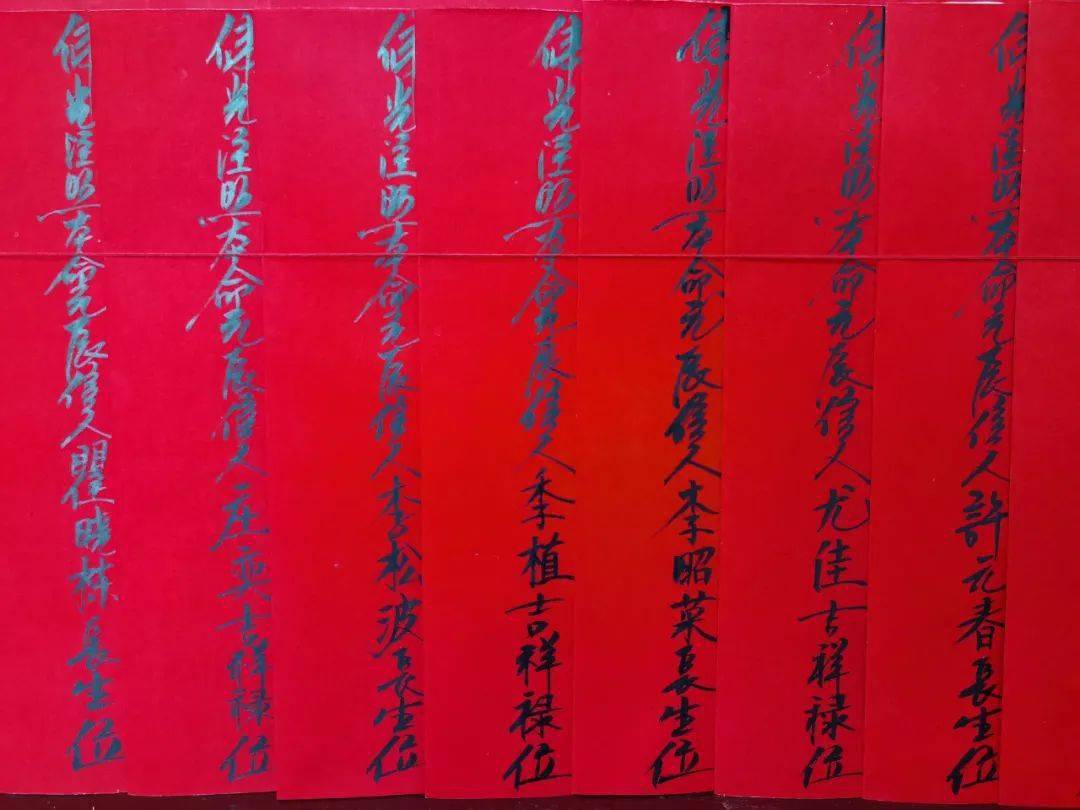 佛光注照本命元辰信人許元春長生位
佛光注照本命元辰信人尤佳吉祥禄位
佛光注照本命元辰信人李昭菜長生位
佛光注照本命元辰信人季植吉祥禄位
佛光注照本命元辰信人李松波長生位
佛光注照本命元辰信人庄奕吉祥禄位
佛光注照本命元辰信人瞿晓栋長生位